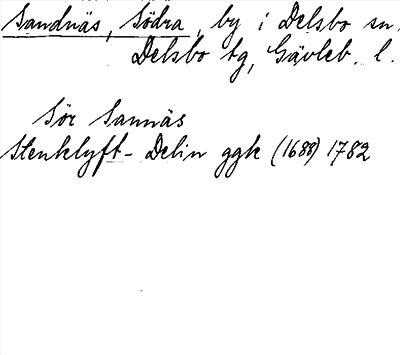 Sandnäs, Södra, by i Delsbo sn.
Delsbo tg, Gävleb. l.
Sör Sannäs
Stenklyft-Delin ggk (1688) 1782